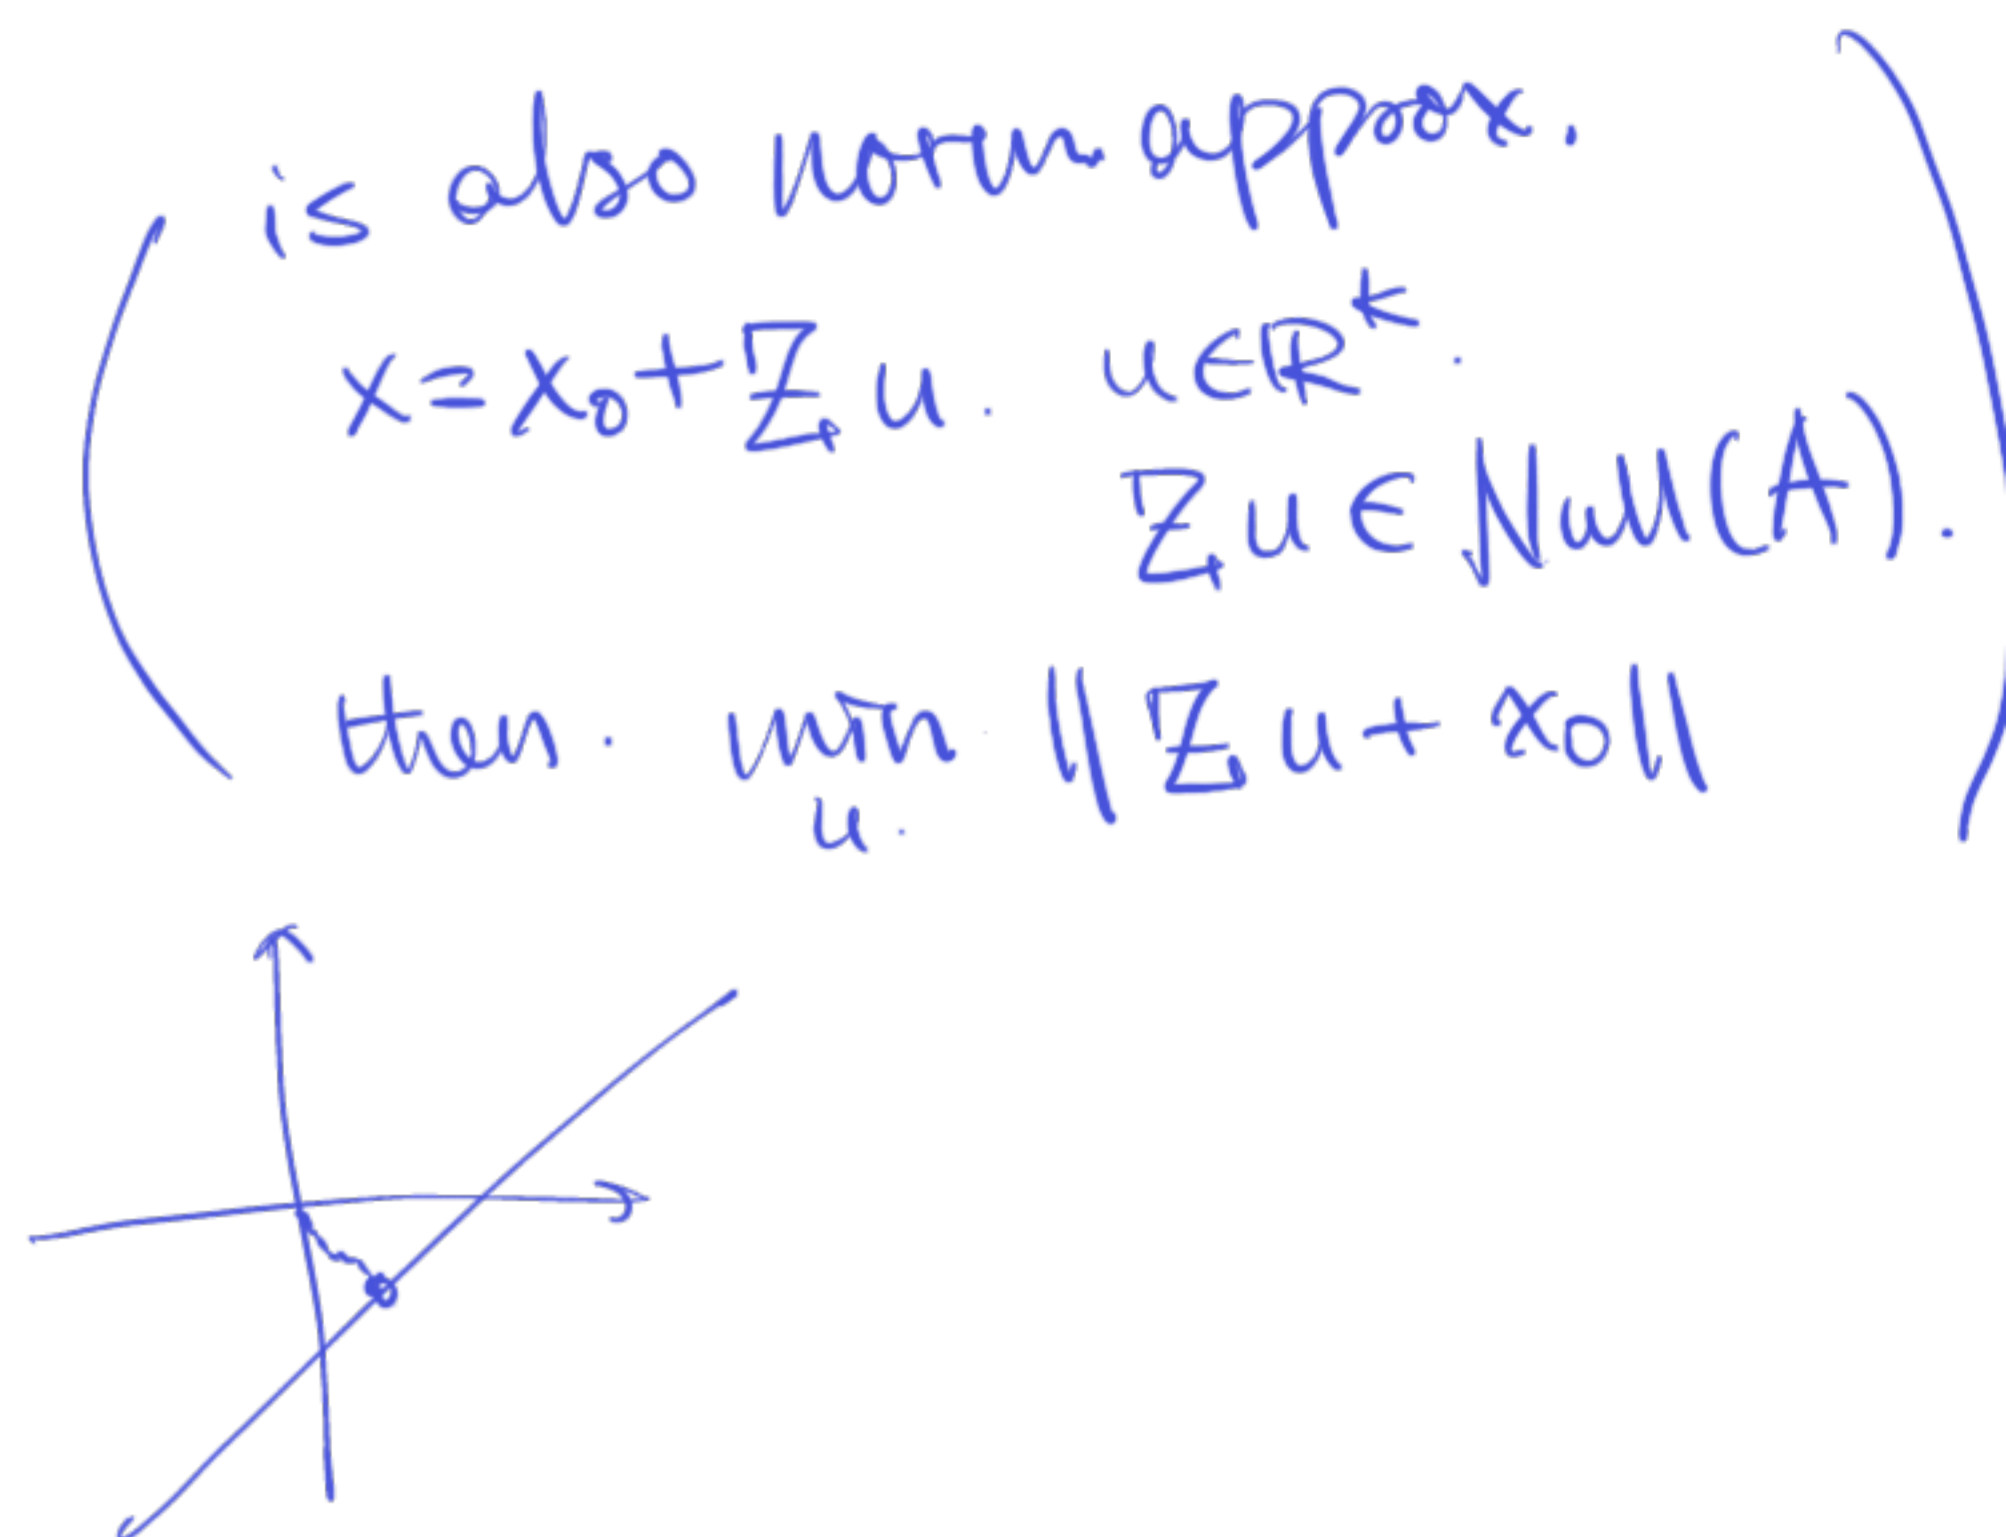 is also norm approx.
x = x₀ + Zu. u ∈ ℝᵏ.
Zu ∈ Null(A).
then. min ‖Zu + x₀‖
u.